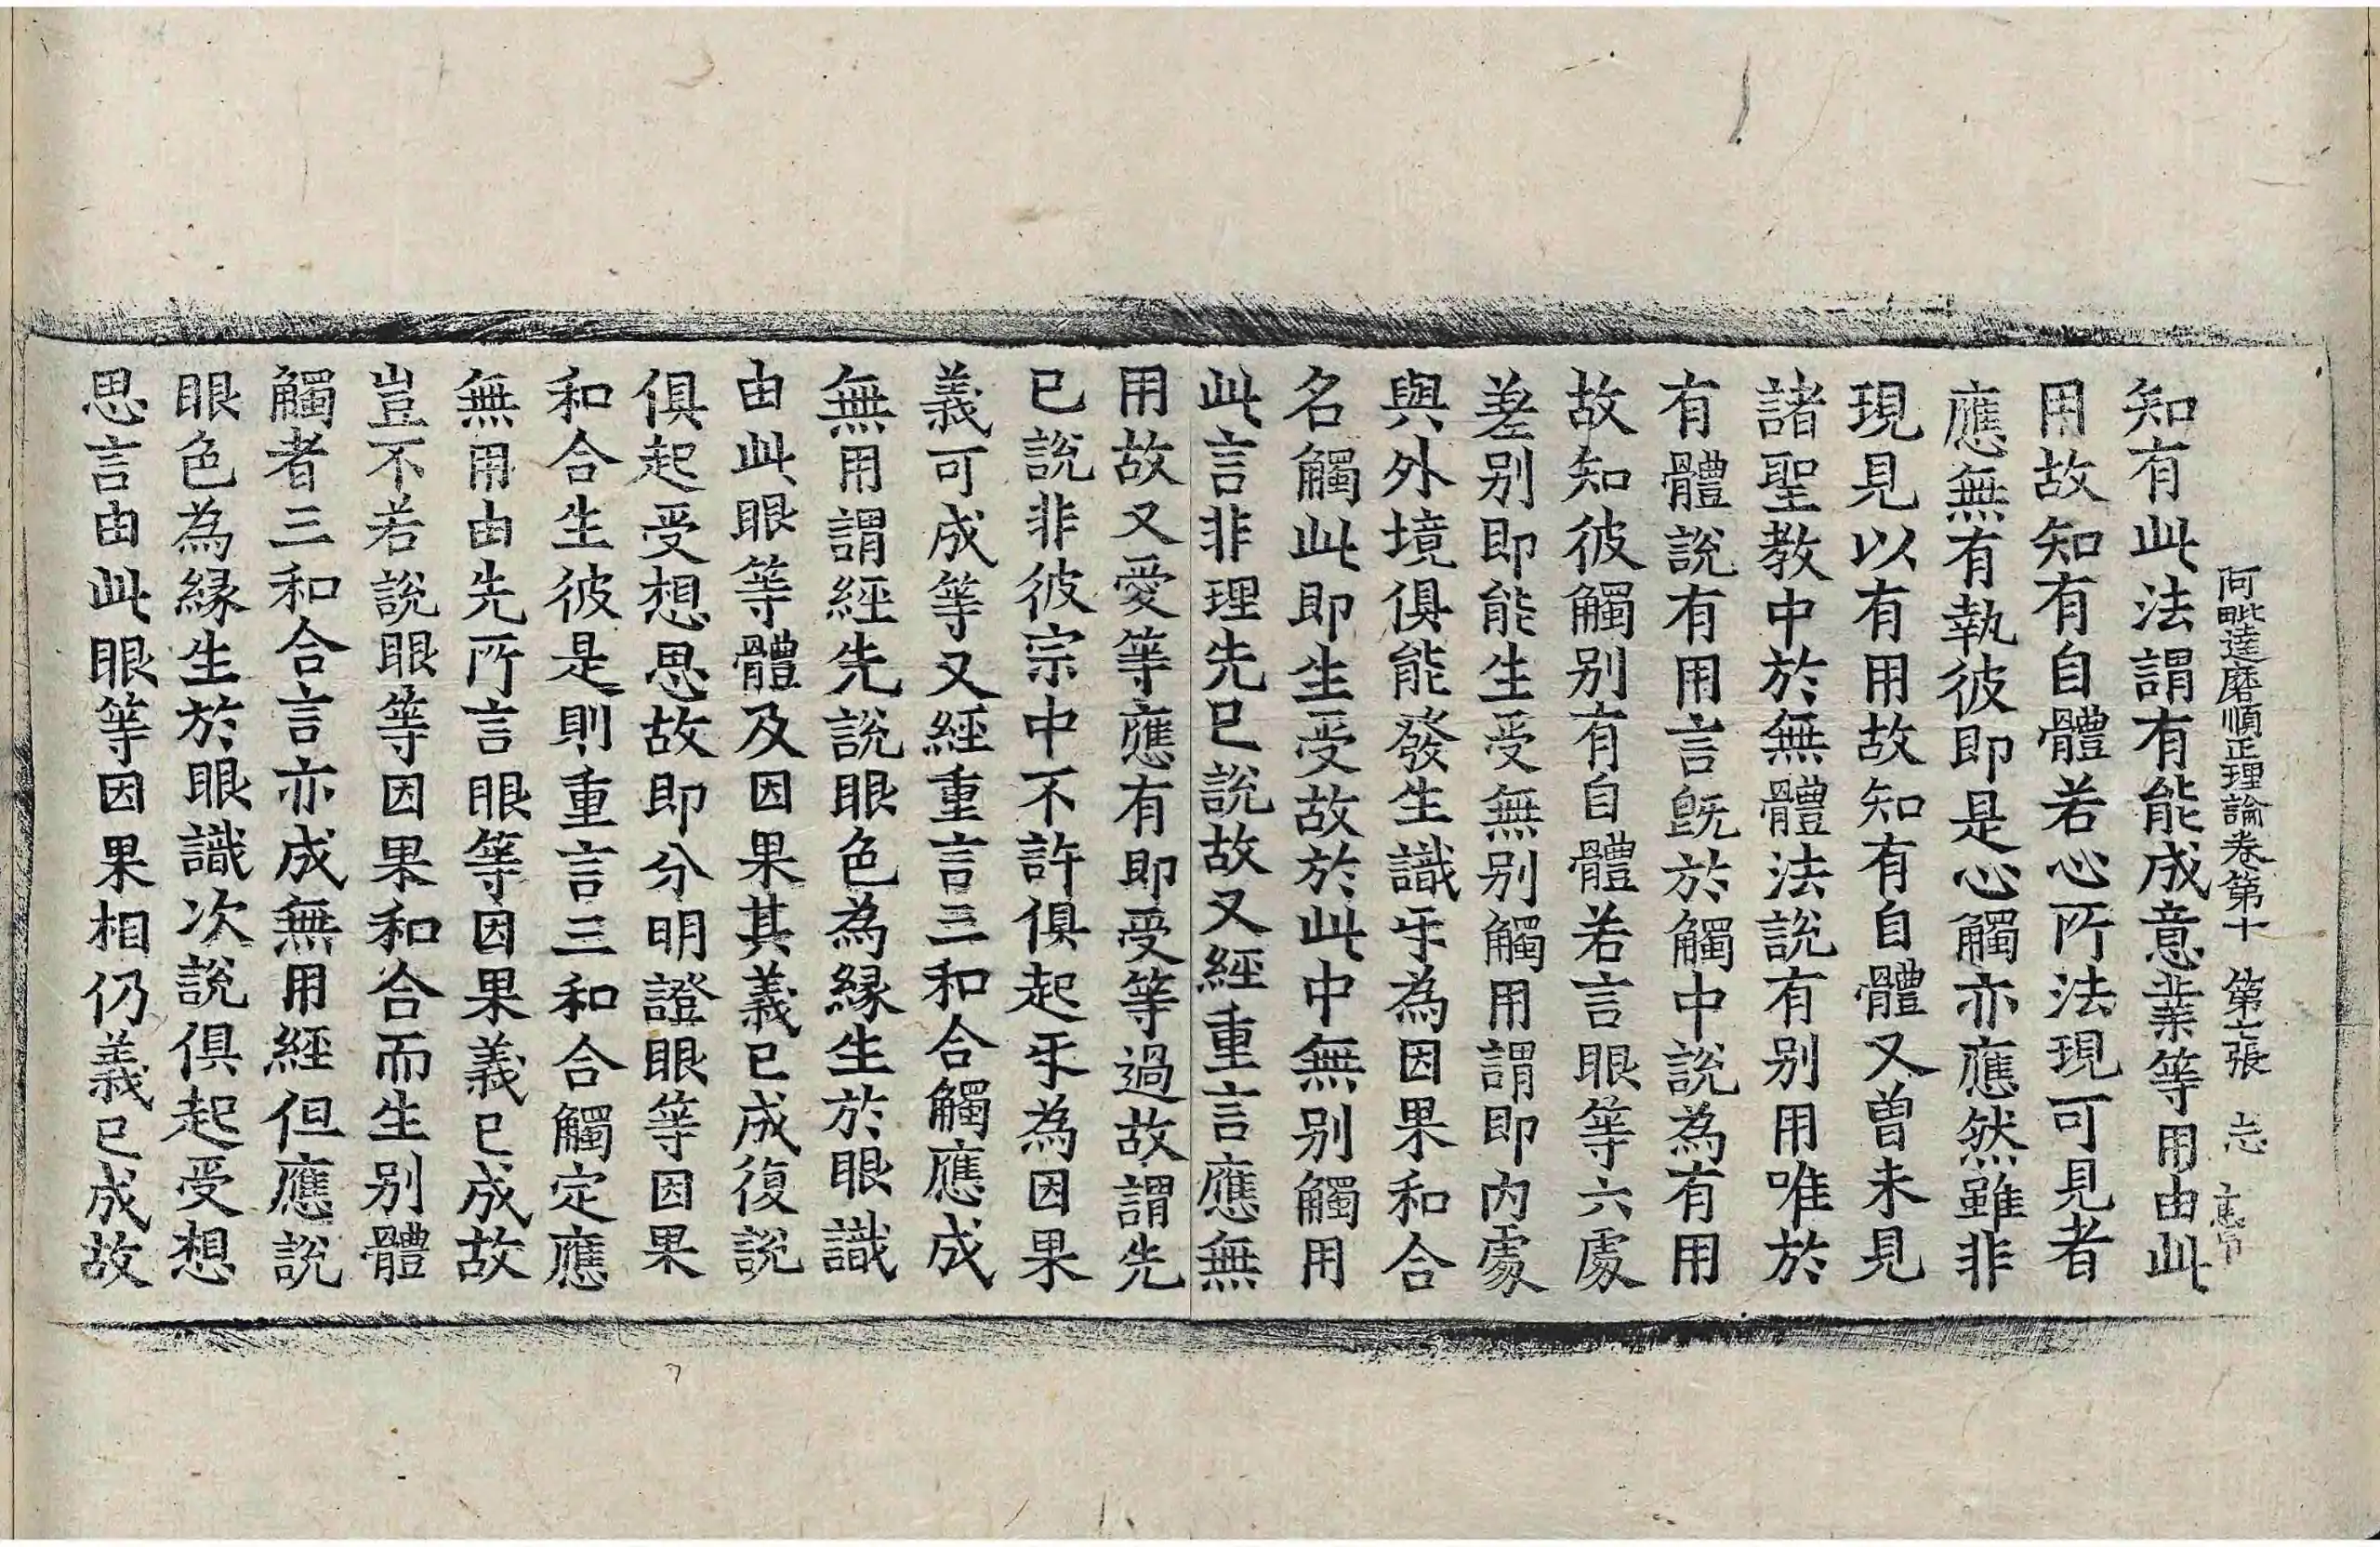 阿毗達磨順正理論卷第十　第七張　志
知有此法謂有能成意業等用由此
用故知有自體若心所法現可見者
應無有執彼即是心觸亦應然雖非
現見以有用故知有自體又曾未見
諸聖教中於無體法說有別用唯於
有體說有用言旣於觸中說為有用
故知彼觸別有自體若言眼等六處
差別即能生受無別觸用謂即內處
與外境俱能發生識乐為因果和合
名觸此即生受故於此中無別觸用
此言非理先已說故又經重言應無
用故又愛等應有即受等過故謂先
已說非彼宗中不許俱起乐為因果
義可成等又經重言三和合觸應成
無用謂經先說眼色為緣生於眼識
由此眼等體及因果其義已成復說
俱起受想思故即分明證眼等因果
和合生彼是則重言三和合觸定應
無用由先所言眼等因果義已成故
豈不若說眼等因果和合而生別體
觸者三和合言亦成無用經但應說
眼色為緣生於眼識次說俱起受想
思言由此眼等因果相仍義已成故